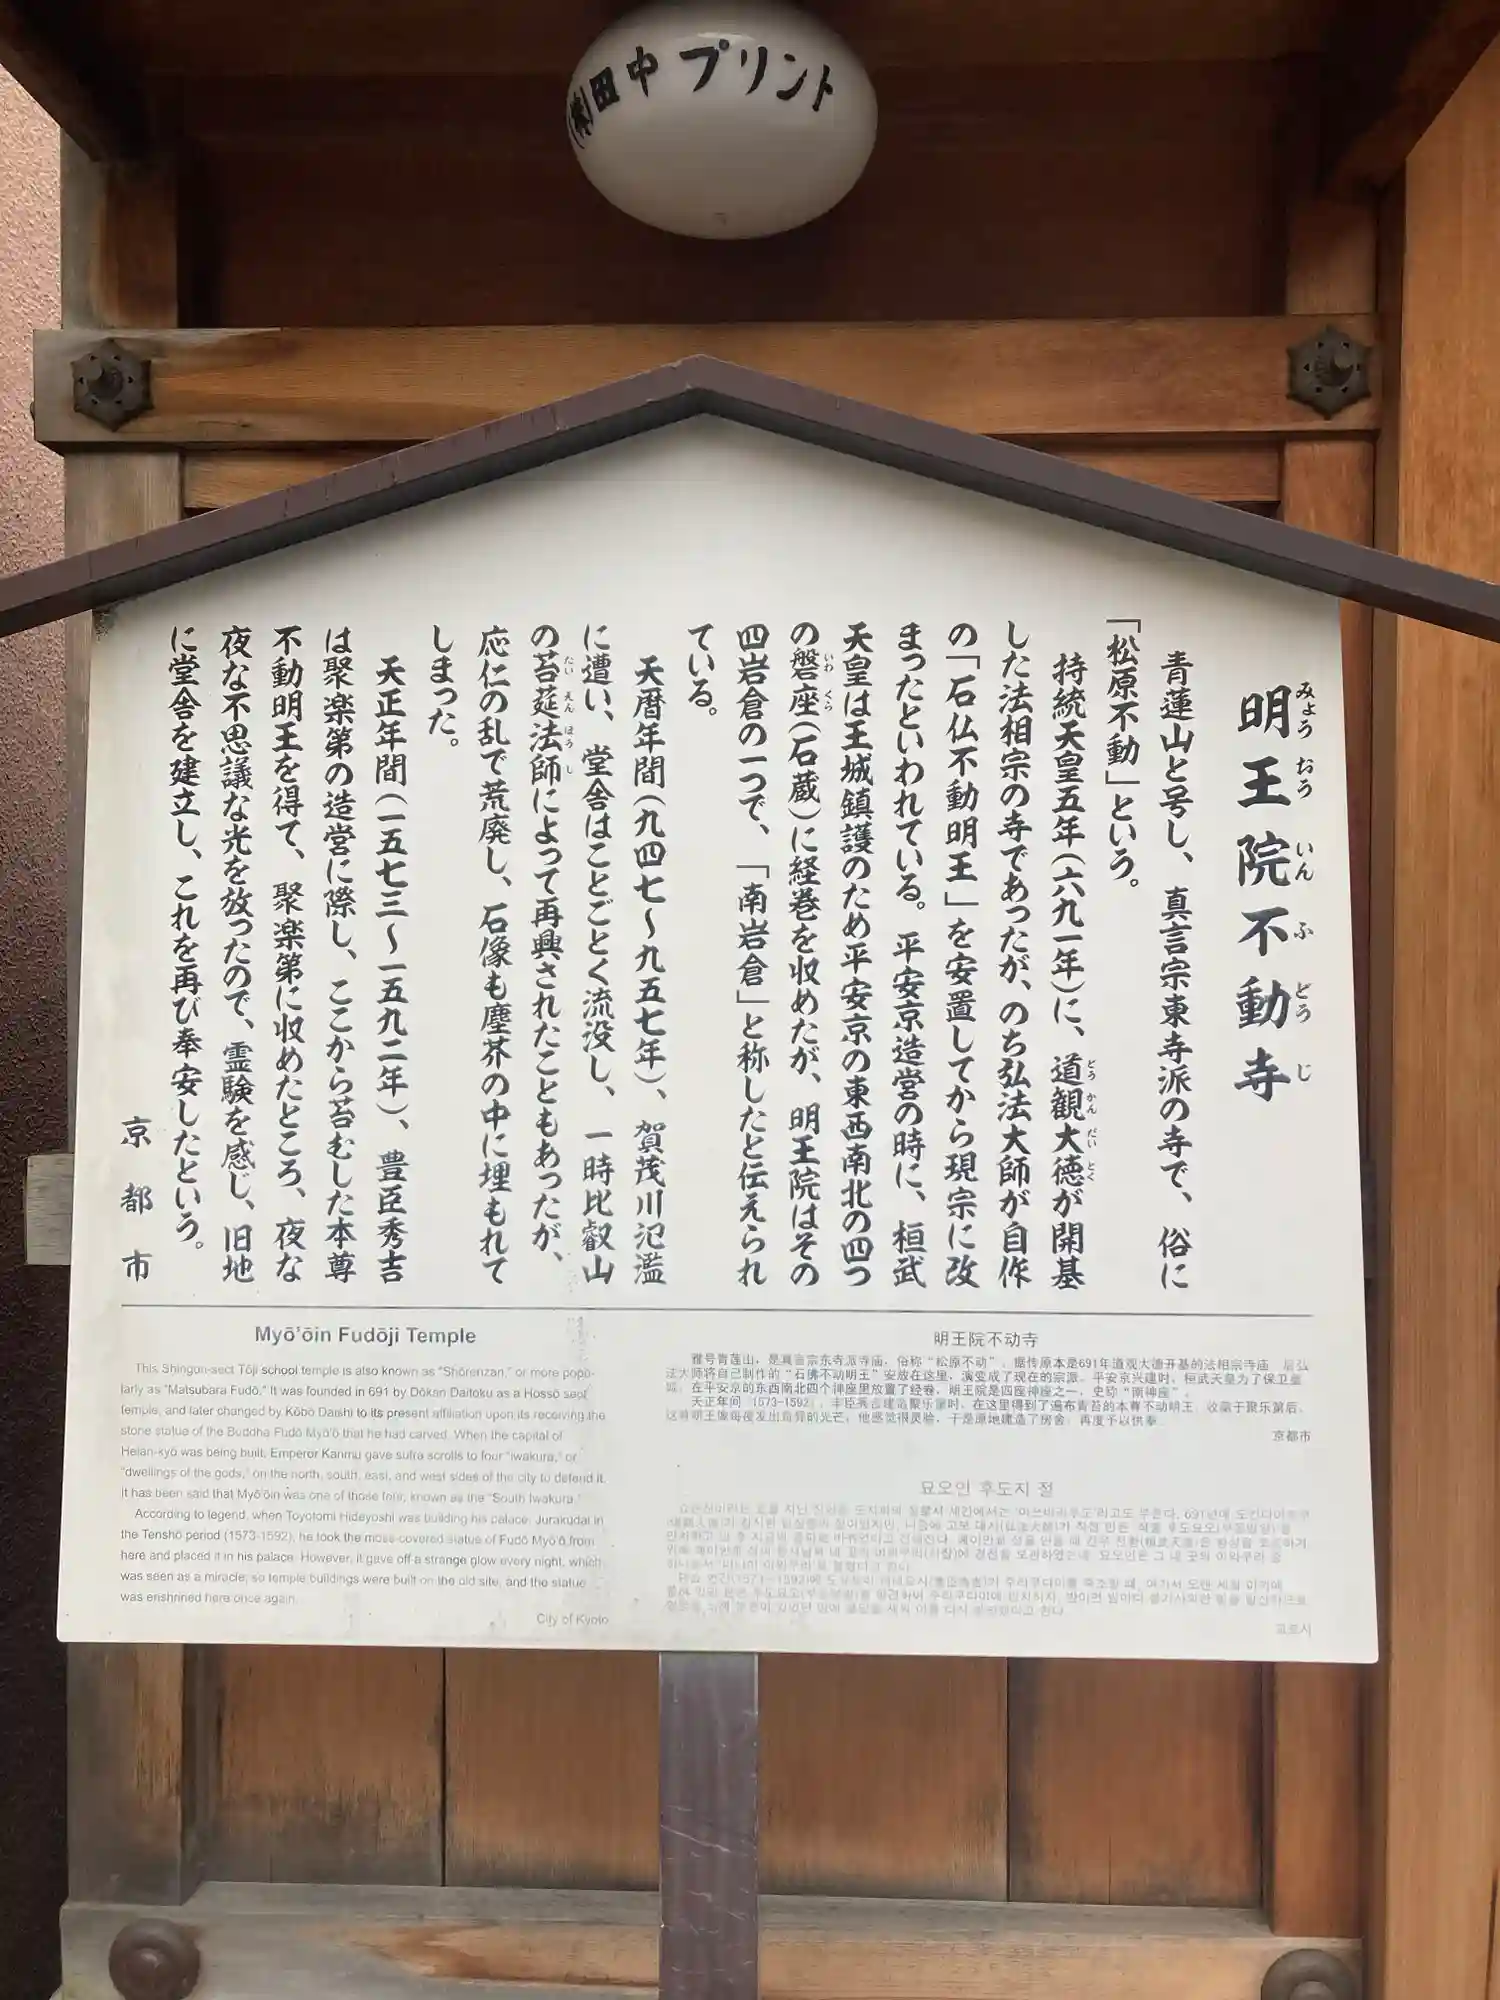 ㈱田中プリント
明王院不動寺
みょうおういんふどうじ
青蓮山と号し、真言宗東寺派の寺で、俗に
「松原不動」という。
持統天皇五年(六九一年)に、道観大徳が開基
どうかんだいとく
した法相宗の寺であったが、のち弘法大師が自作
の「石仏不動明王」を安置してから現宗に改
まったといわれている。平安京造営の時に、桓武
天皇は王城鎮護のため平安京の東西南北の四つ
の磐座(石蔵)に経巻を収めたが、明王院はその
いわくら
四岩倉の一つで、「南岩倉」と称したと伝えられ
ている。
天暦年間(九四七〜九五七年)、賀茂川氾濫
に遭い、堂舎はことごとく流没し、一時比叡山
の苔莚法師によって再興されたこともあったが、
たいえんほうし
応仁の乱で荒廃し、石像も塵芥の中に埋もれて
しまった。
天正年間(一五七三〜一五九二年)、豊臣秀吉
は聚楽第の造営に際し、ここから苔むした本尊
不動明王を得て、聚楽第に収めたところ、夜な
夜な不思議な光を放ったので、霊験を感じ、旧地
に堂舎を建立し、これを再び奉安したという。
京都市
Myō'ōin Fudōji Temple
This Shingon-sect Tōji school temple is also known as "Shōrenzan," or more popu-
larly as "Matsubara Fudō." It was founded in 691 by Dōkan Daitoku as a Hossō sect
temple, and later changed by Kōbō Daishi to its present affiliation upon its receiving the
stone statue of the Buddha Fudō Myō'ō that he had carved. When the capital of
Heian-kyō was being built, Emperor Kanmu gave sutra scrolls to four "iwakura," or
"dwellings of the gods," on the north, south, east, and west sides of the city to defend it.
It has been said that Myō'ōin was one of those four, known as the "South Iwakura."
According to legend, when Toyotomi Hideyoshi was building his palace, Jurakudai in
the Tenshō period (1573-1592), he took the moss-covered statue of Fudō Myō'ō from
here and placed it in his palace. However, it gave off a strange glow every night, which
was seen as a miracle, so temple buildings were built on the old site, and the statue
was enshrined here once again.
City of Kyoto
明王院不动寺
雅号青莲山，是真言宗东寺派寺庙，俗称“松原不动”。据传原本是691年道观大德开基的法相宗寺庙
法大师将自己制作的“石佛不动明王”安放在这里，演变成了现在的宗派。平安京兴建时，桓武天皇为了保卫皇
在平安京的东西南北四个神座里放置了经卷，明王院是四座神座之一，史称“南神座”。
天正年间（1573-1592），丰臣秀吉建造聚乐第时，在这里得到了遍布青苔的本尊不动明王，收藏于聚乐第后，
光芒，他感觉很灵验，于是原地建造了房舍，再度予以供奉。
京都市
묘오인 후도지 절
교토시